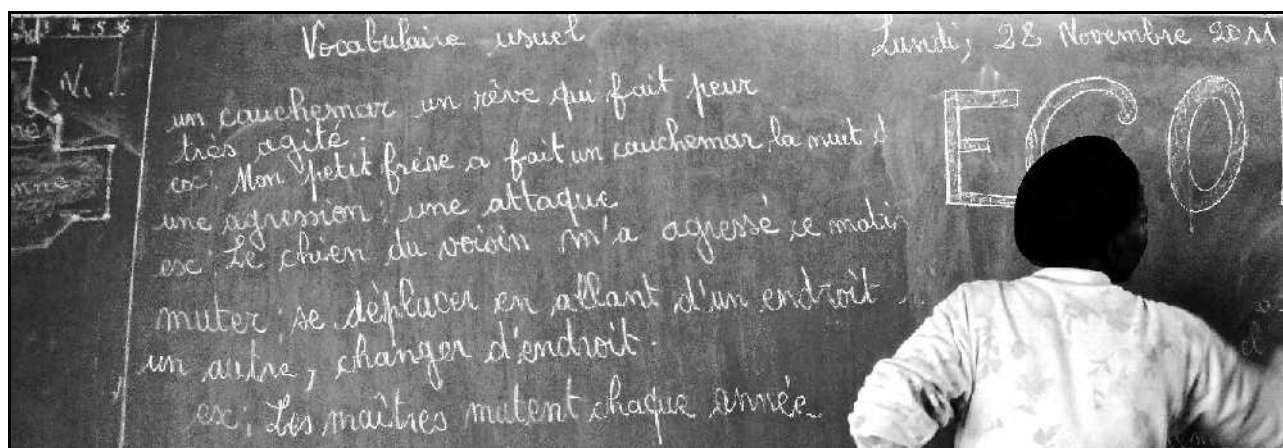 Vocabulaire usuel
Lundi, 28 Novembre 2011
4 5 6
N.
un cauchemar un rêve qui fait peur
très agité.
ex: Mon petit frère a fait un cauchemar la nuit d
une agression: une attaque
ex: Le chien du voisin m'a agressé ce matin
muter: se déplacer en allant d'un endroit
un autre, changer d'endroit.
ex: Les maîtres mutent chaque année.
ECO